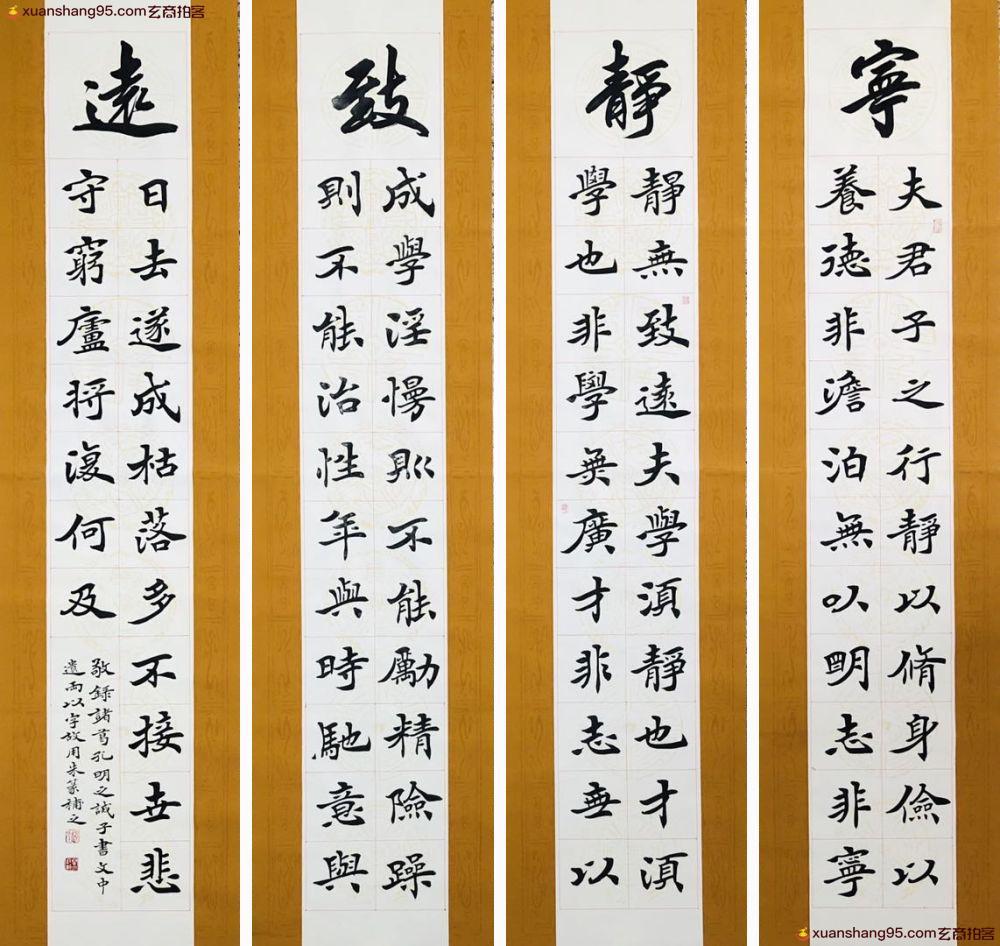 xuanshang95.com玄商拍客
寧
夫君子之行靜以脩身儉以
養德非澹泊無以明志非寧
靜
靜無致遠夫學湏靜也才湏
學也非學無廣才非志無以
致
成學淫慢則不能勵精險躁
則不能治性年與時馳意與
遠
日去遂成枯落多不接世悲
守窮廬將復何及
敬錄諸葛孔明之誡子書文中
遺兩以字故用朱篆補之
xuanshang95.com玄商拍客